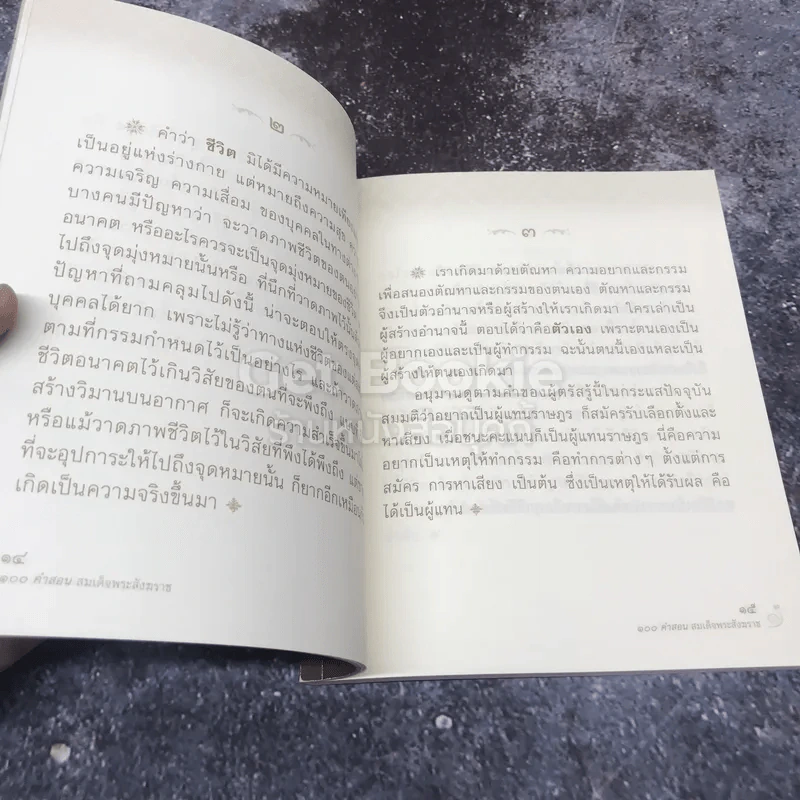 ๒
คำว่า ชีวิต มิได้มีความหมายเพียง
เป็นอยู่แห่งร่างกาย แต่หมายถึงความสุข
ความเจริญ ความเสื่อม ของบุคคลในทาง
บางคนมีปัญหาว่า จะวาดภาพชีวิตของตน
อนาคต หรืออะไรควรจะเป็นจุดมุ่งหมายของชีวิต
ไปถึงจุดมุ่งหมายนั้นหรือ ที่นึกที่วาดภาพไว้นั้น
ปัญหาที่ถามคลุมไปดังนี้ น่าจะตอบให้
บุคคลได้ยาก เพราะไม่รู้ว่าทางแห่งชีวิตของ
ตามที่กรรมกำหนดไว้เป็นอย่างไร และ
ชีวิตอนาคตไว้เกินวิสัยของตนที่จะพึงถึง
สร้างวิมานบนอากาศ ก็จะเกิดความสำเร็จขึ้น
หรือแม้วาดภาพชีวิตไว้ในวิสัยที่พึงได้พึงถึง แต่
ที่จะอุปการะให้ไปถึงจุดหมายนั้น ก็ยากอีกเหมือน
เกิดเป็นความจริงขึ้นมา
๑๔
๑๐๐ คำสอน สมเด็จพระสังฆราช
๓
เราเกิดมาด้วยตัณหา ความอยากและกรรม
เพื่อสนองตัณหาและกรรมของตนเอง ตัณหาและกรรม
จึงเป็นตัวอำนาจหรือผู้สร้างให้เราเกิดมา ใครเล่าเป็น
ผู้สร้างอำนาจนี้ ตอบได้ว่าคือตัวเอง เพราะตนเองเป็น
ผู้อยากเองและเป็นผู้ทำกรรม ฉะนั้นตนนี้เองแหละเป็น
ผู้สร้างให้ตนเองเกิดมา
อนุมานดูตามคำของผู้ตรัสรู้นี้ในกระแสปัจจุบัน
สมมติว่าอยากเป็นผู้แทนราษฎร ก็สมัครรับเลือกตั้งและ
หาเสียง เมื่อชนะคะแนนก็เป็นผู้แทนราษฎร นี่คือความ
อยากเป็นเหตุให้ทำกรรม คือทำการต่างๆ ตั้งแต่การ
สมัคร การหาเสียง เป็นต้น ซึ่งเป็นเหตุให้ได้รับผล คือ
ได้เป็นผู้แทน
๑๕
๑๐๐ คำสอน สมเด็จพระสังฆราช
Get Bookie